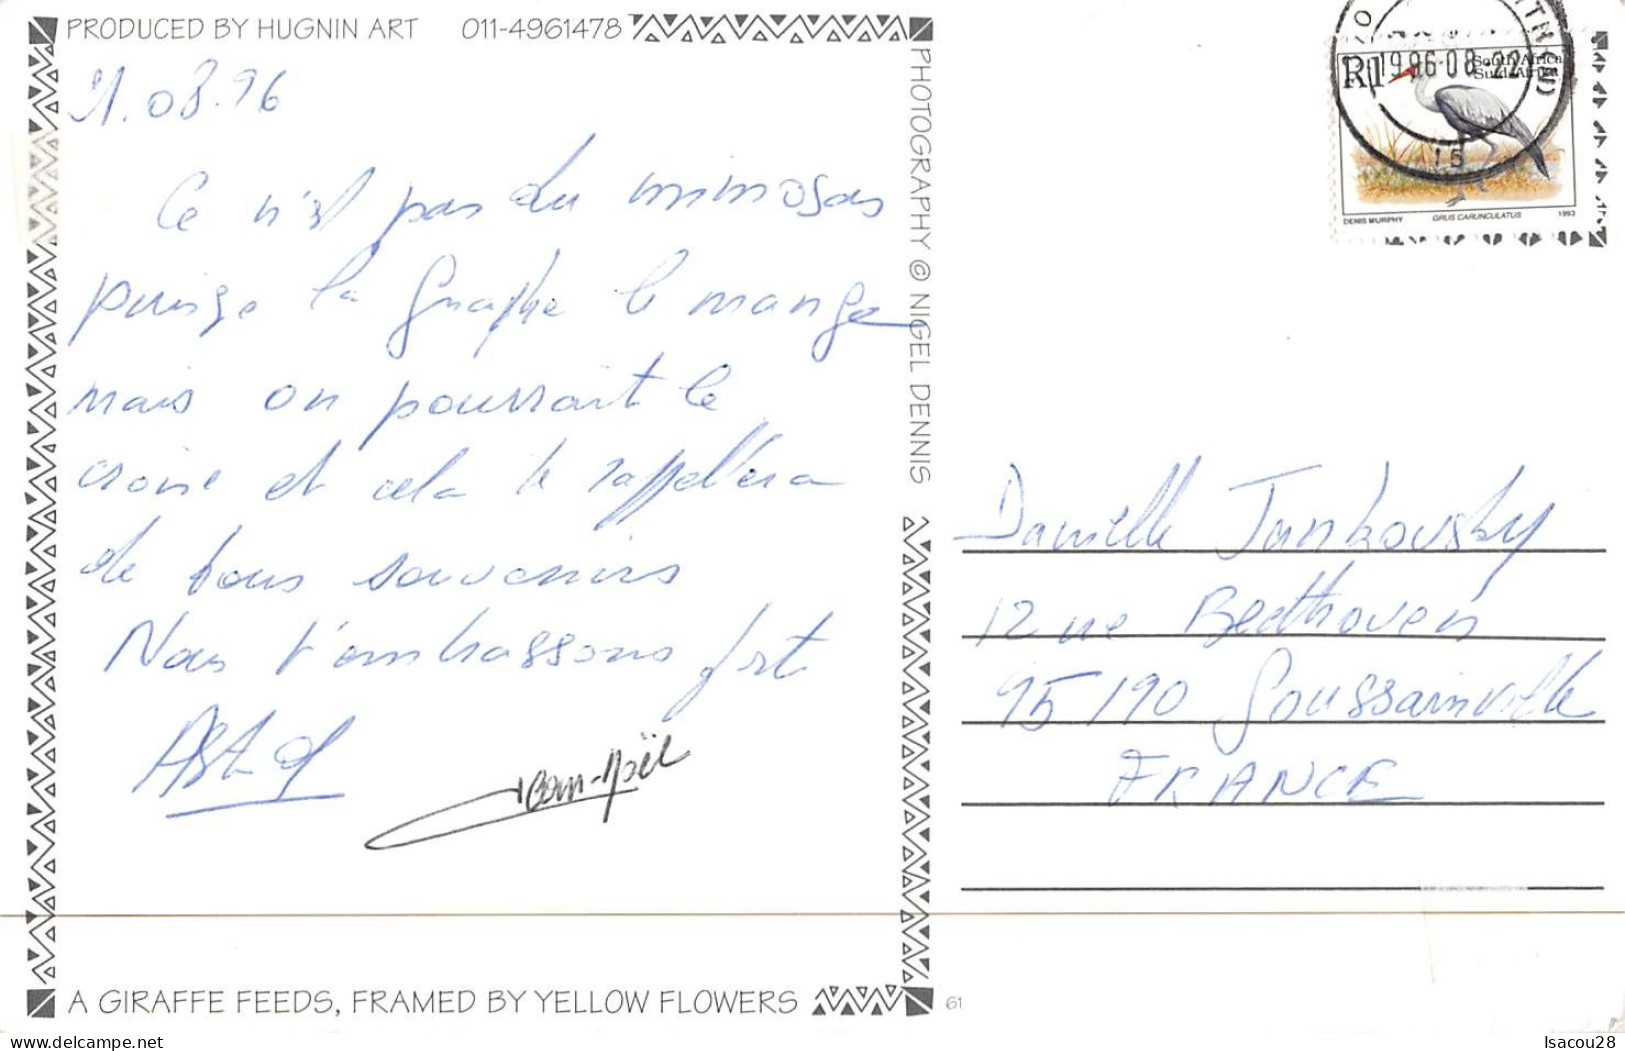 PRODUCED BY HUGNIN ART 011-4961478
21.08.96
Ce n'est pas du mimosas
puisque la Giraphe le mange
mais on pourrait le
croire et cela te rappellera
de bons souvenirs
Nous t'embrassons fort
Jean-Noël
A GIRAFFE FEEDS, FRAMED BY YELLOW FLOWERS
PHOTOGRAPHY © NIGEL DENNIS
R1
1996-08-22
South Africa
Suid-Afrika
15
DENIS MURPHY GRUS CARUNCULATUS 1993
Danielle Jankovsky
12 rue Beethoven
95190 Goussainville
FRANCE
61
Isacou28